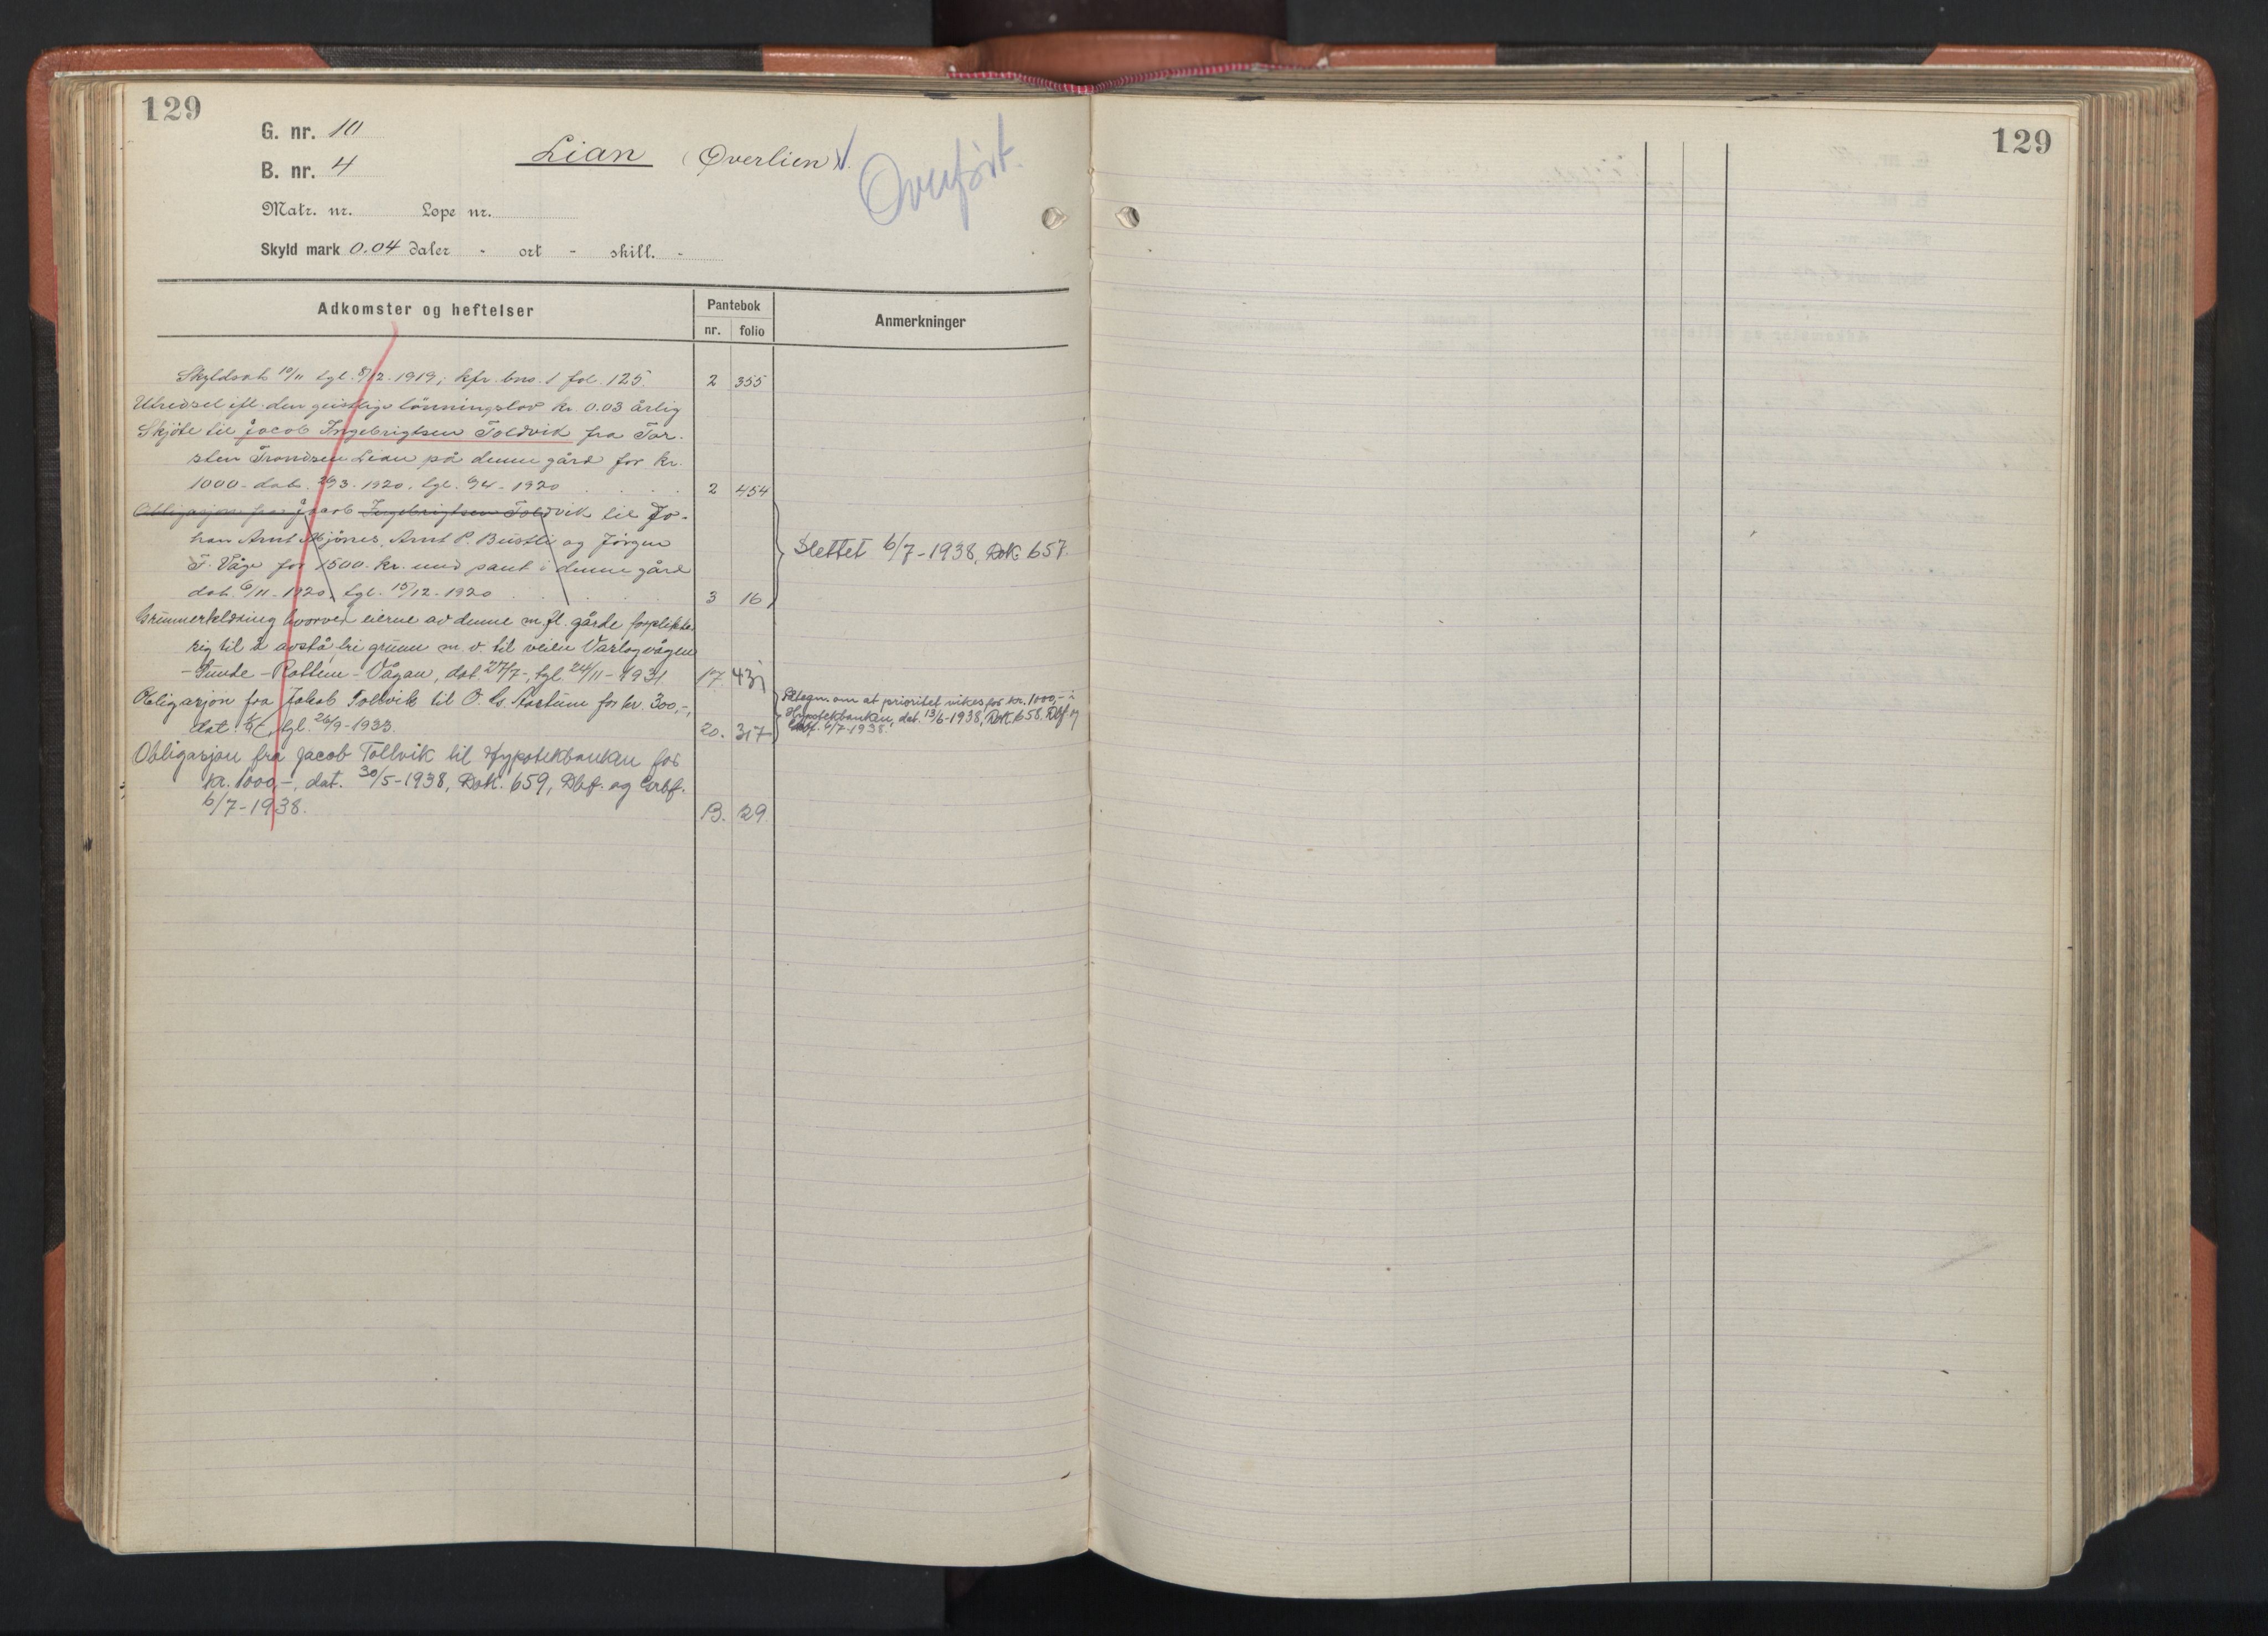 129
G. nr. 10
B. nr. 4
Lian (Överlien)
Overført.
Matr. nr. Løpe nr.
Skyld mark 0.04 daler - ort - skill. -
Adkomster og heftelser
Pantebok
nr. folio
Anmerkninger
Skyldsat 10/11 tgl. 8/12-1919, kfr. bno. 1 fol. 125. 2 355
Utredsel ifl. den geistlige lönningslov kr. 0.03 årlig
Skjöte til Jacob Ingebrigtsen Toldvik fra Tor-
sten Trondsen Lian på denne gård for kr.
1000.- dat. 3-1920, tgl. 4-1920 2 454
Obligasjon fra Jacob Ingebrigtsen Toldvik til Jo-
han Arnt Mjönes, Arnt P. Bustli og Jörgen
F. Våge for 1500.- kr. med pant i denne gård
dat. 6/11-1920, tgl. 15/12-1920 3 16
Slettet 6/7-1938, Dok. 657.
Grunnerklæring hvorved eierne av denne m. fl. gårde forplikter
sig til å avstå fri grunn m. v. til veien Vaslagvågen
- Sunde - Rottem - Vågan, dat. 27/7-, tgl. 24/11-1931. 17. 431
Obligasjon fra Jakob Tollvik til O. G. Aastum for kr. 300,-,
dat. tgl. 26/9-1933. 20. 317
Påtegn. om at prioritet vikes for kr. 1000,- i
Hypotekbanken, dat. 13/6-1938, Dok. 658. Dbf. og
Grbf. 6/7-1938.
Obligasjon fra Jacob Tollvik til Hypotekbanken for
kr. 1000,-, dat. 30/5-1938, Dok. 659, Dbf. og Grbf.
6/7-1938. B. 29.
129